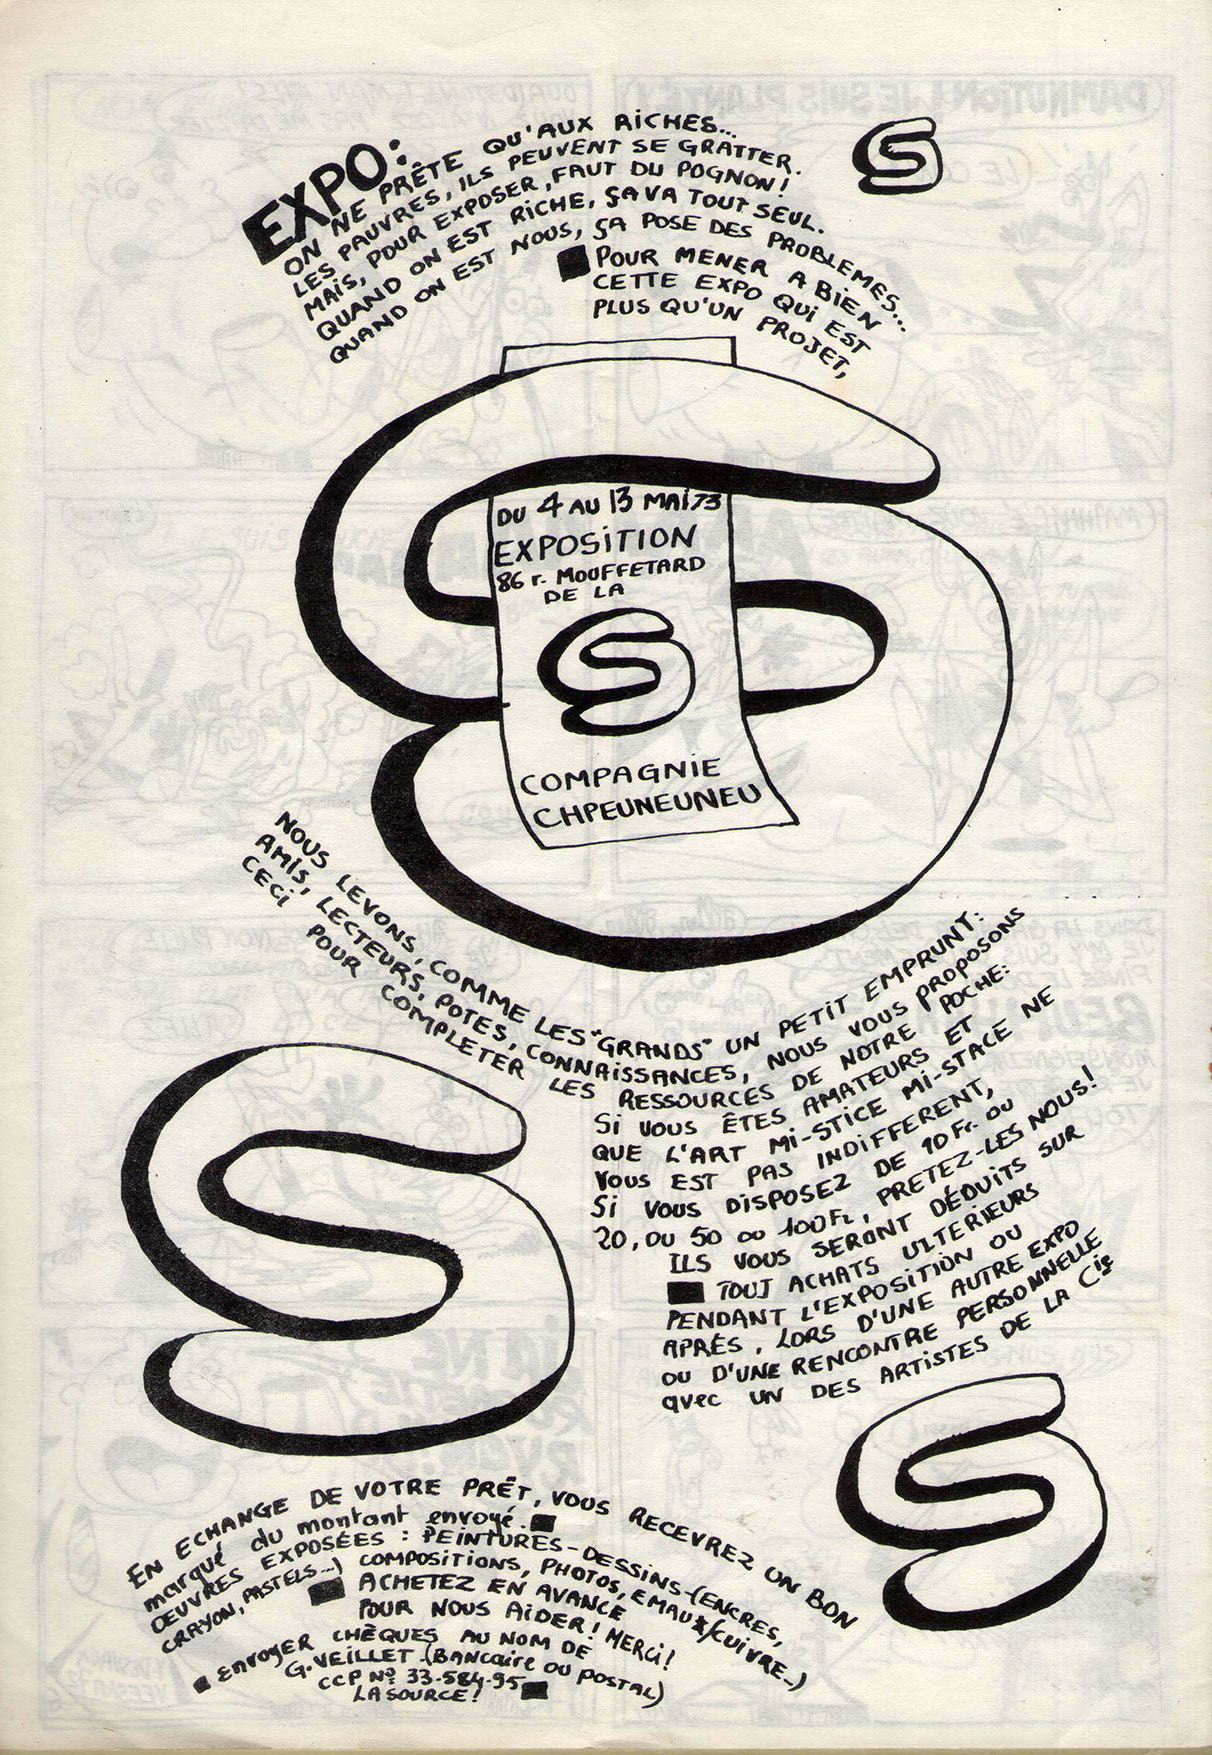 EXPO:
ON NE PRÊTE QU'AUX RICHES...
LES PAUVRES, ILS PEUVENT SE GRATTER.
MAIS, POUR EXPOSER, FAUT DU POGNON!
QUAND ON EST RICHE, ÇA VA TOUT SEUL.
QUAND ON EST NOUS, ÇA POSE DES PROBLEMES...
POUR MENER A BIEN
CETTE EXPO QUI EST
PLUS QU'UN PROJET,
S
DU 4 AU 13 MAI 73
EXPOSITION
86 r. MOUFFETARD
DE LA
S
COMPAGNIE
CHPEUNEUNEU
NOUS LEVONS, COMME LES "GRANDS" UN PETIT EMPRUNT:
AMIS, LECTEURS, POTES, CONNAISSANCES, NOUS VOUS PROPOSONS
CECI POUR COMPLETER LES RESSOURCES DE NOTRE POCHE:
Si VOUS ÊTES AMATEURS ET
QUE L'ART MI-STICE MI-STACE NE
VOUS EST PAS INDIFFERENT,
Si VOUS DISPOSEZ DE 10 Fr. OU
20, OU 50 OU 100 Fr, PRETEZ-LES NOUS!
ILS VOUS SERONT DÉDUITS SUR
TOUT ACHATS ULTERIEURS
PENDANT L'EXPOSITION OU
APRÈS, LORS D'UNE AUTRE EXPO
OU D'UNE RENCONTRE PERSONNELLE
avec UN DES ARTISTES DE LA Cie
S
S
EN ECHANGE DE VOTRE PRÊT, VOUS RECEVREZ UN BON
marqué du montant envoyé.
OEUVRES EXPOSÉES : PEINTURES-DESSINS-(ENCRES,
CRAYON, PASTELS...) COMPOSITIONS, PHOTOS, EMAUX/CUIVRE...)
ACHETEZ EN AVANCE
POUR NOUS AIDER! MERCI!
envoyer CHÈQUES AU NOM DE
G. VEILLET (BANCaire ou POSTAL)
CCP Nº 33-584-95
LA SOURCE!